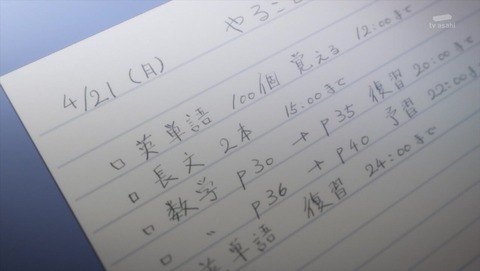 tv asahi
やること
4/21（月）
□ 英単語 100個 覚える 12:00まで
□ 長文 2本 15:00まで
□ 数学 P30 → P35 復習 20:00まで
□ 〃 P36 → P40 予習 22:00まで
英単語 復習 24:00まで